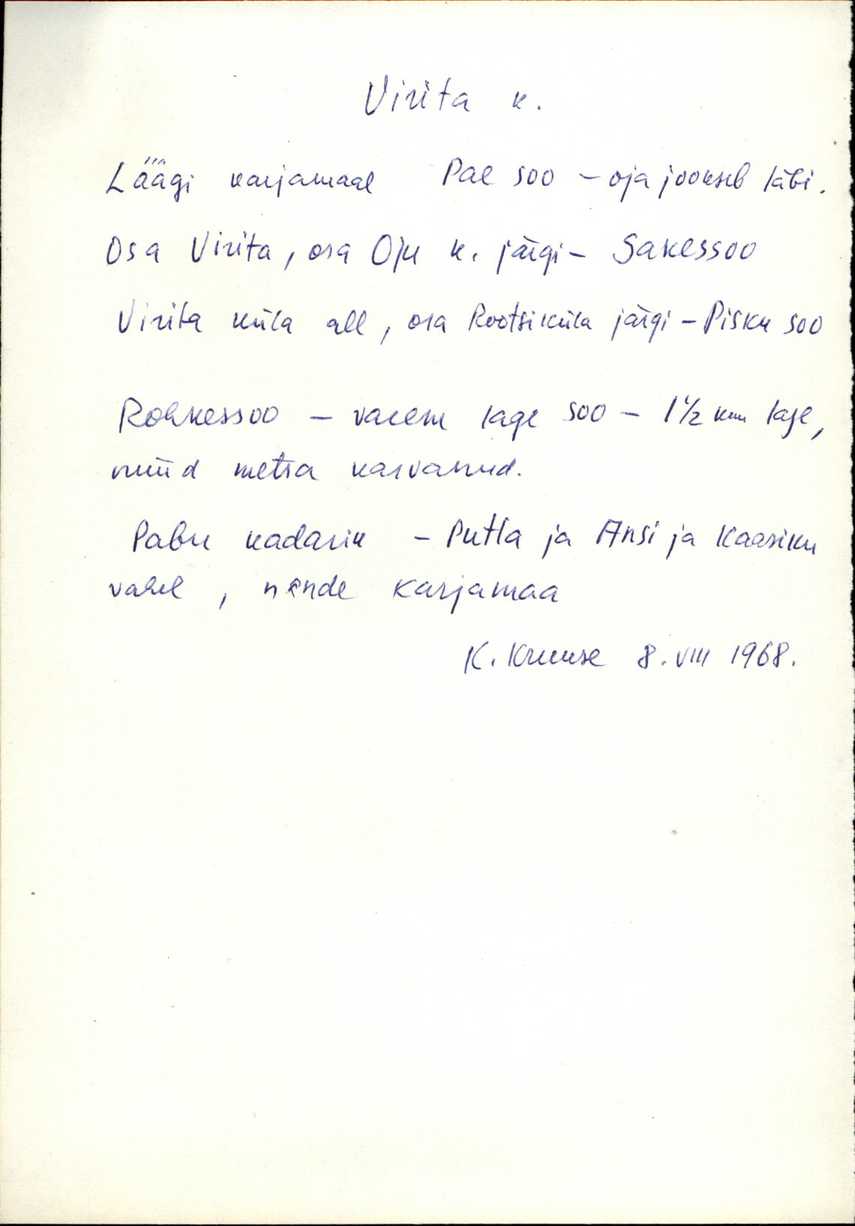 Virita k.
Läägi karjamaal Pae soo – oja jookseb läbi.
Osa Virita, osa Oju k. järgi – Sakessoo
Virita küla all, osa Rootsiküla järgi – Pisku soo
Rohkessoo – varem lage soo – 1 1/2 km lage,
nüüd metsa kasvanud.
Pabu kadarik – Putla ja Ansi ja Kaasiku
vahel, nende karjamaa
K. Kruuse 8. VIII 1968.